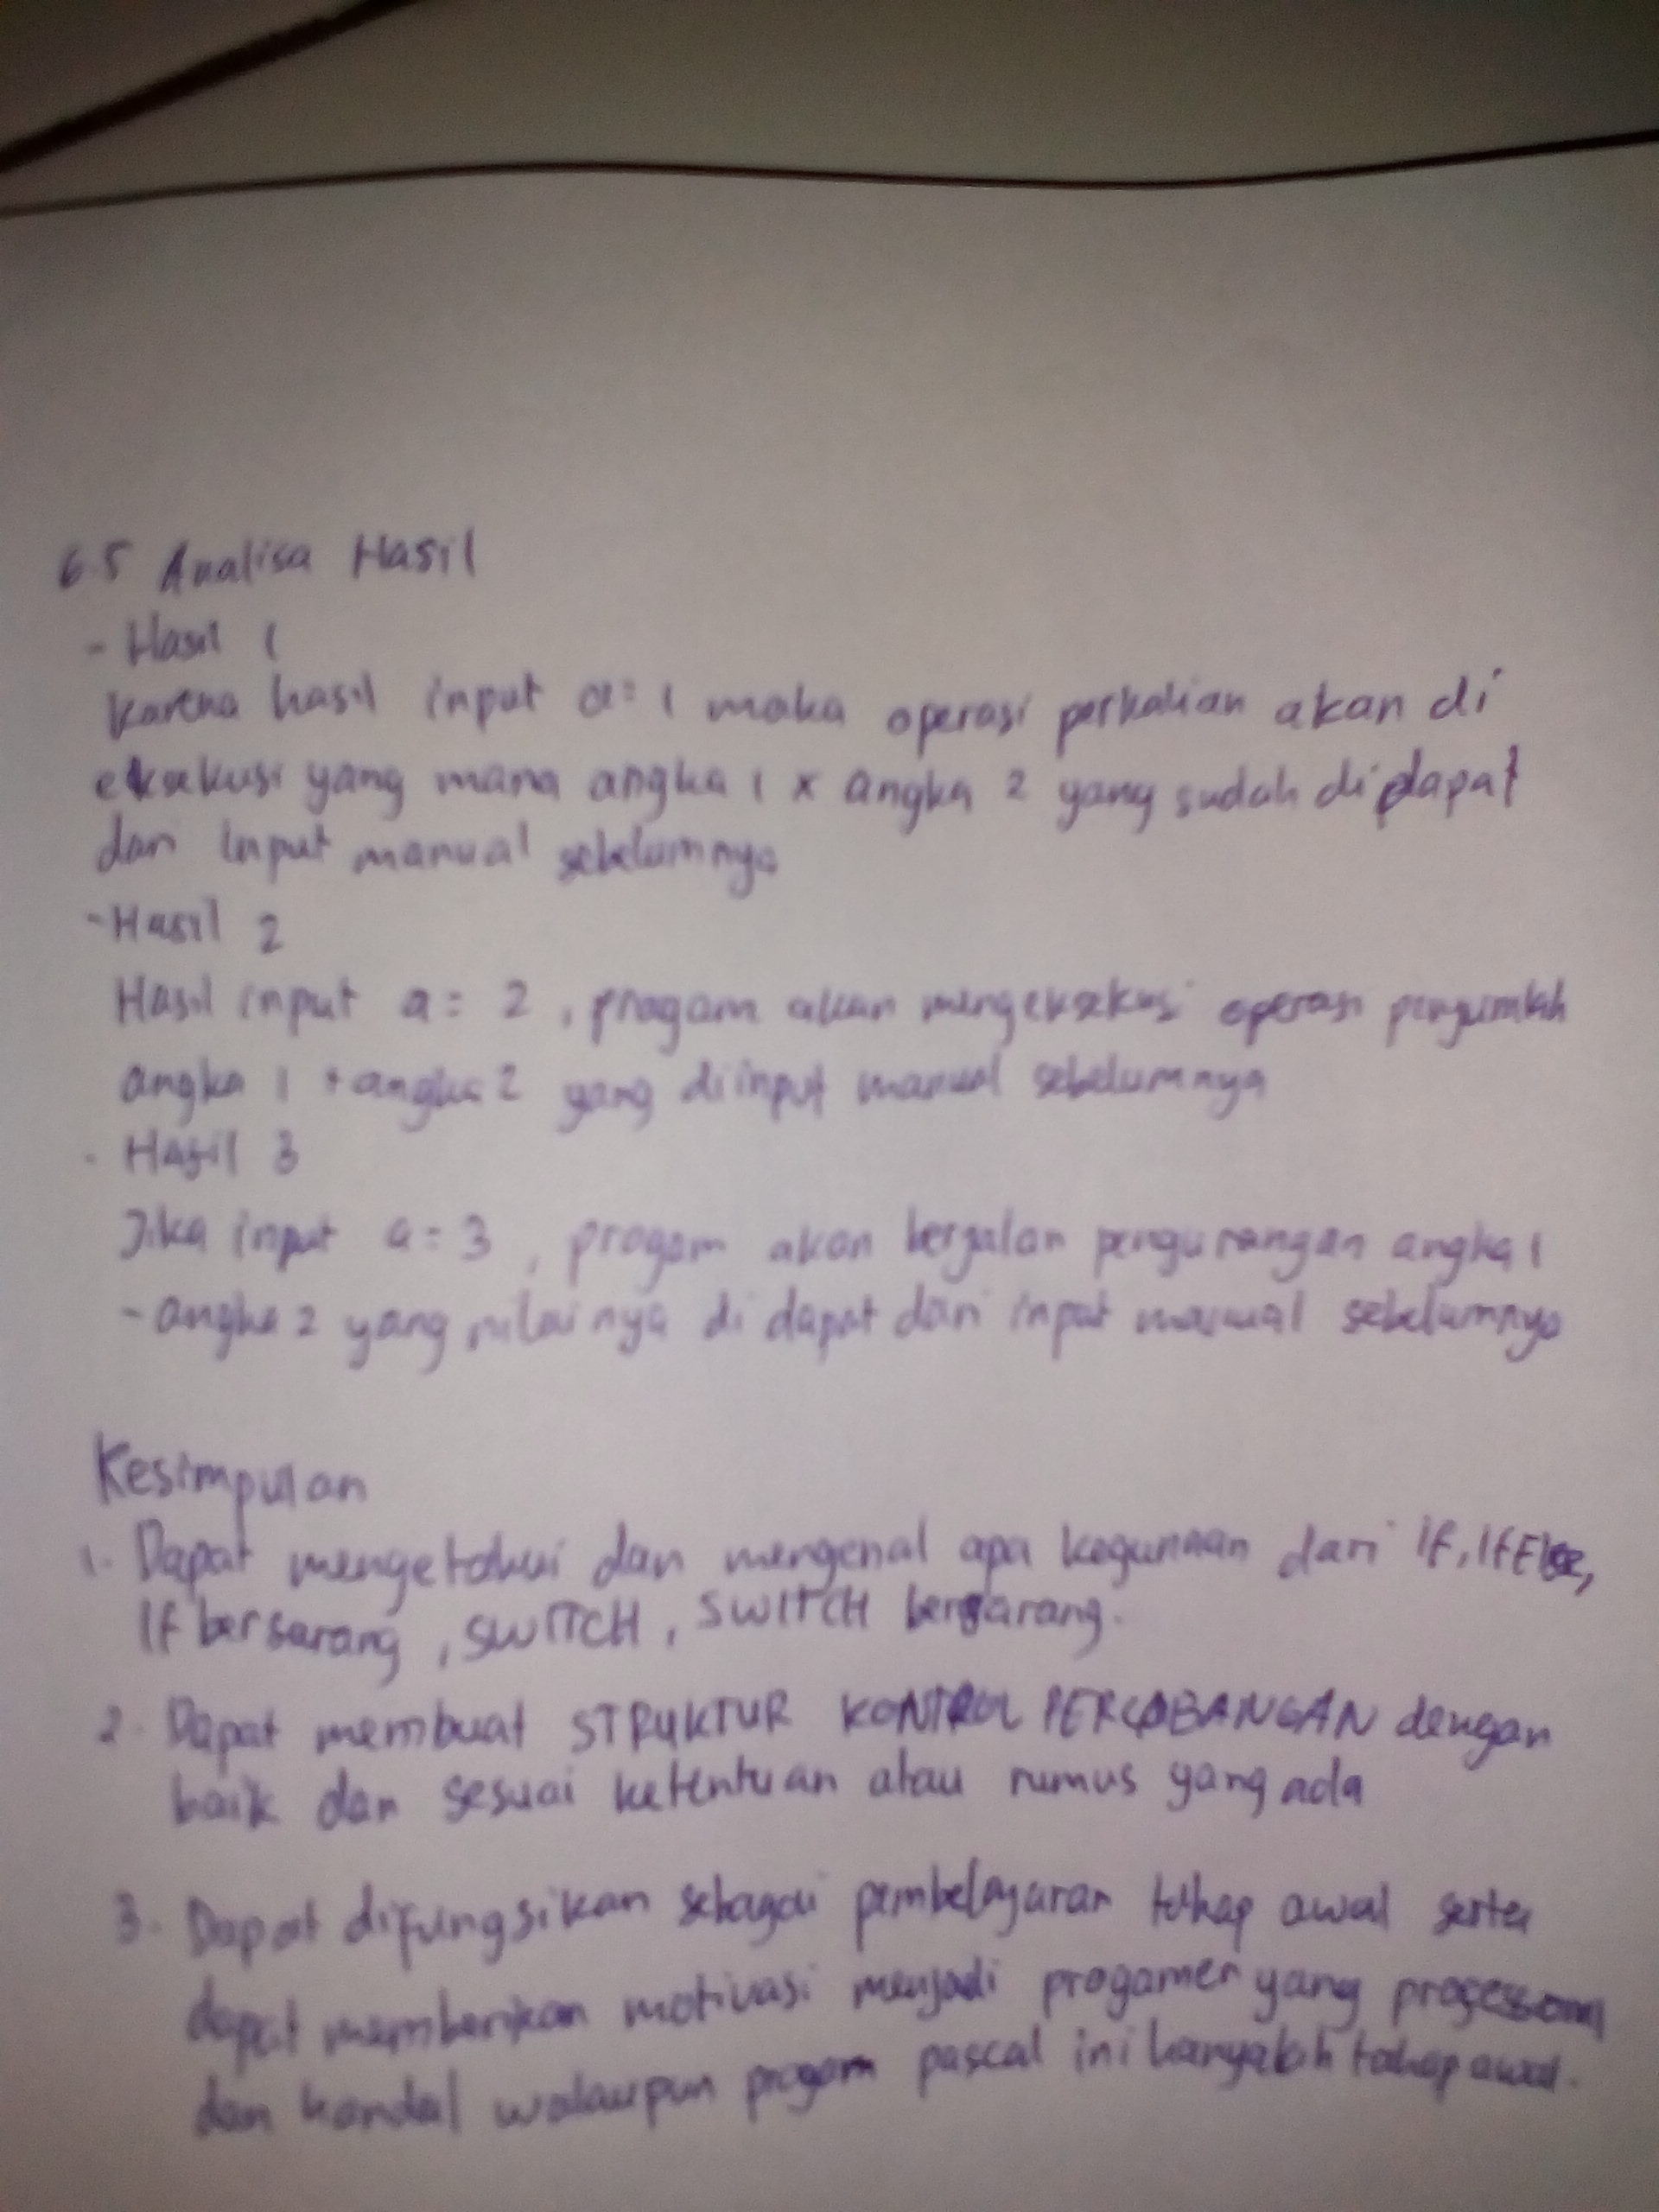 6.5 Analisa Hasil
- Hasil 1
Karena hasil input a=1 maka operasi perkalian akan di
eksekusi yang mana angka 1 x angka 2 yang sudah di dapat
dari input manual sebelumnya
- Hasil 2
Hasil input a = 2, progam akan mengeksekusi operasi penjumlah
angka 1 + angka 2 yang diinput manual sebelumnya
- Hasil 3
Jika input a = 3, progam akan berjalan pengurangan angka 1
- angka 2 yang nilainya di dapat dari input manual sebelumnya
Kesimpulan
1. Dapat mengetahui dan mengenal apa kegunaan dari If, If Else,
If bersarang, SWITCH, SWITCH bersarang.
2. Dapat membuat STRUKTUR KONTROL PERCABANGAN dengan
baik dan sesuai ketentuan atau rumus yang ada
3. Dapat difungsikan sebagai pembelajaran tahap awal serta
dapat memberikan motivasi menjadi progamer yang
dan handal walaupun progam pascal ini hanyalah tahap awal.